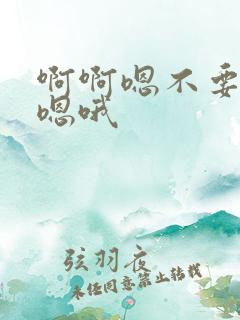 啊啊嗯不要
嗯哦
弦羽夜
未经同意禁止转载